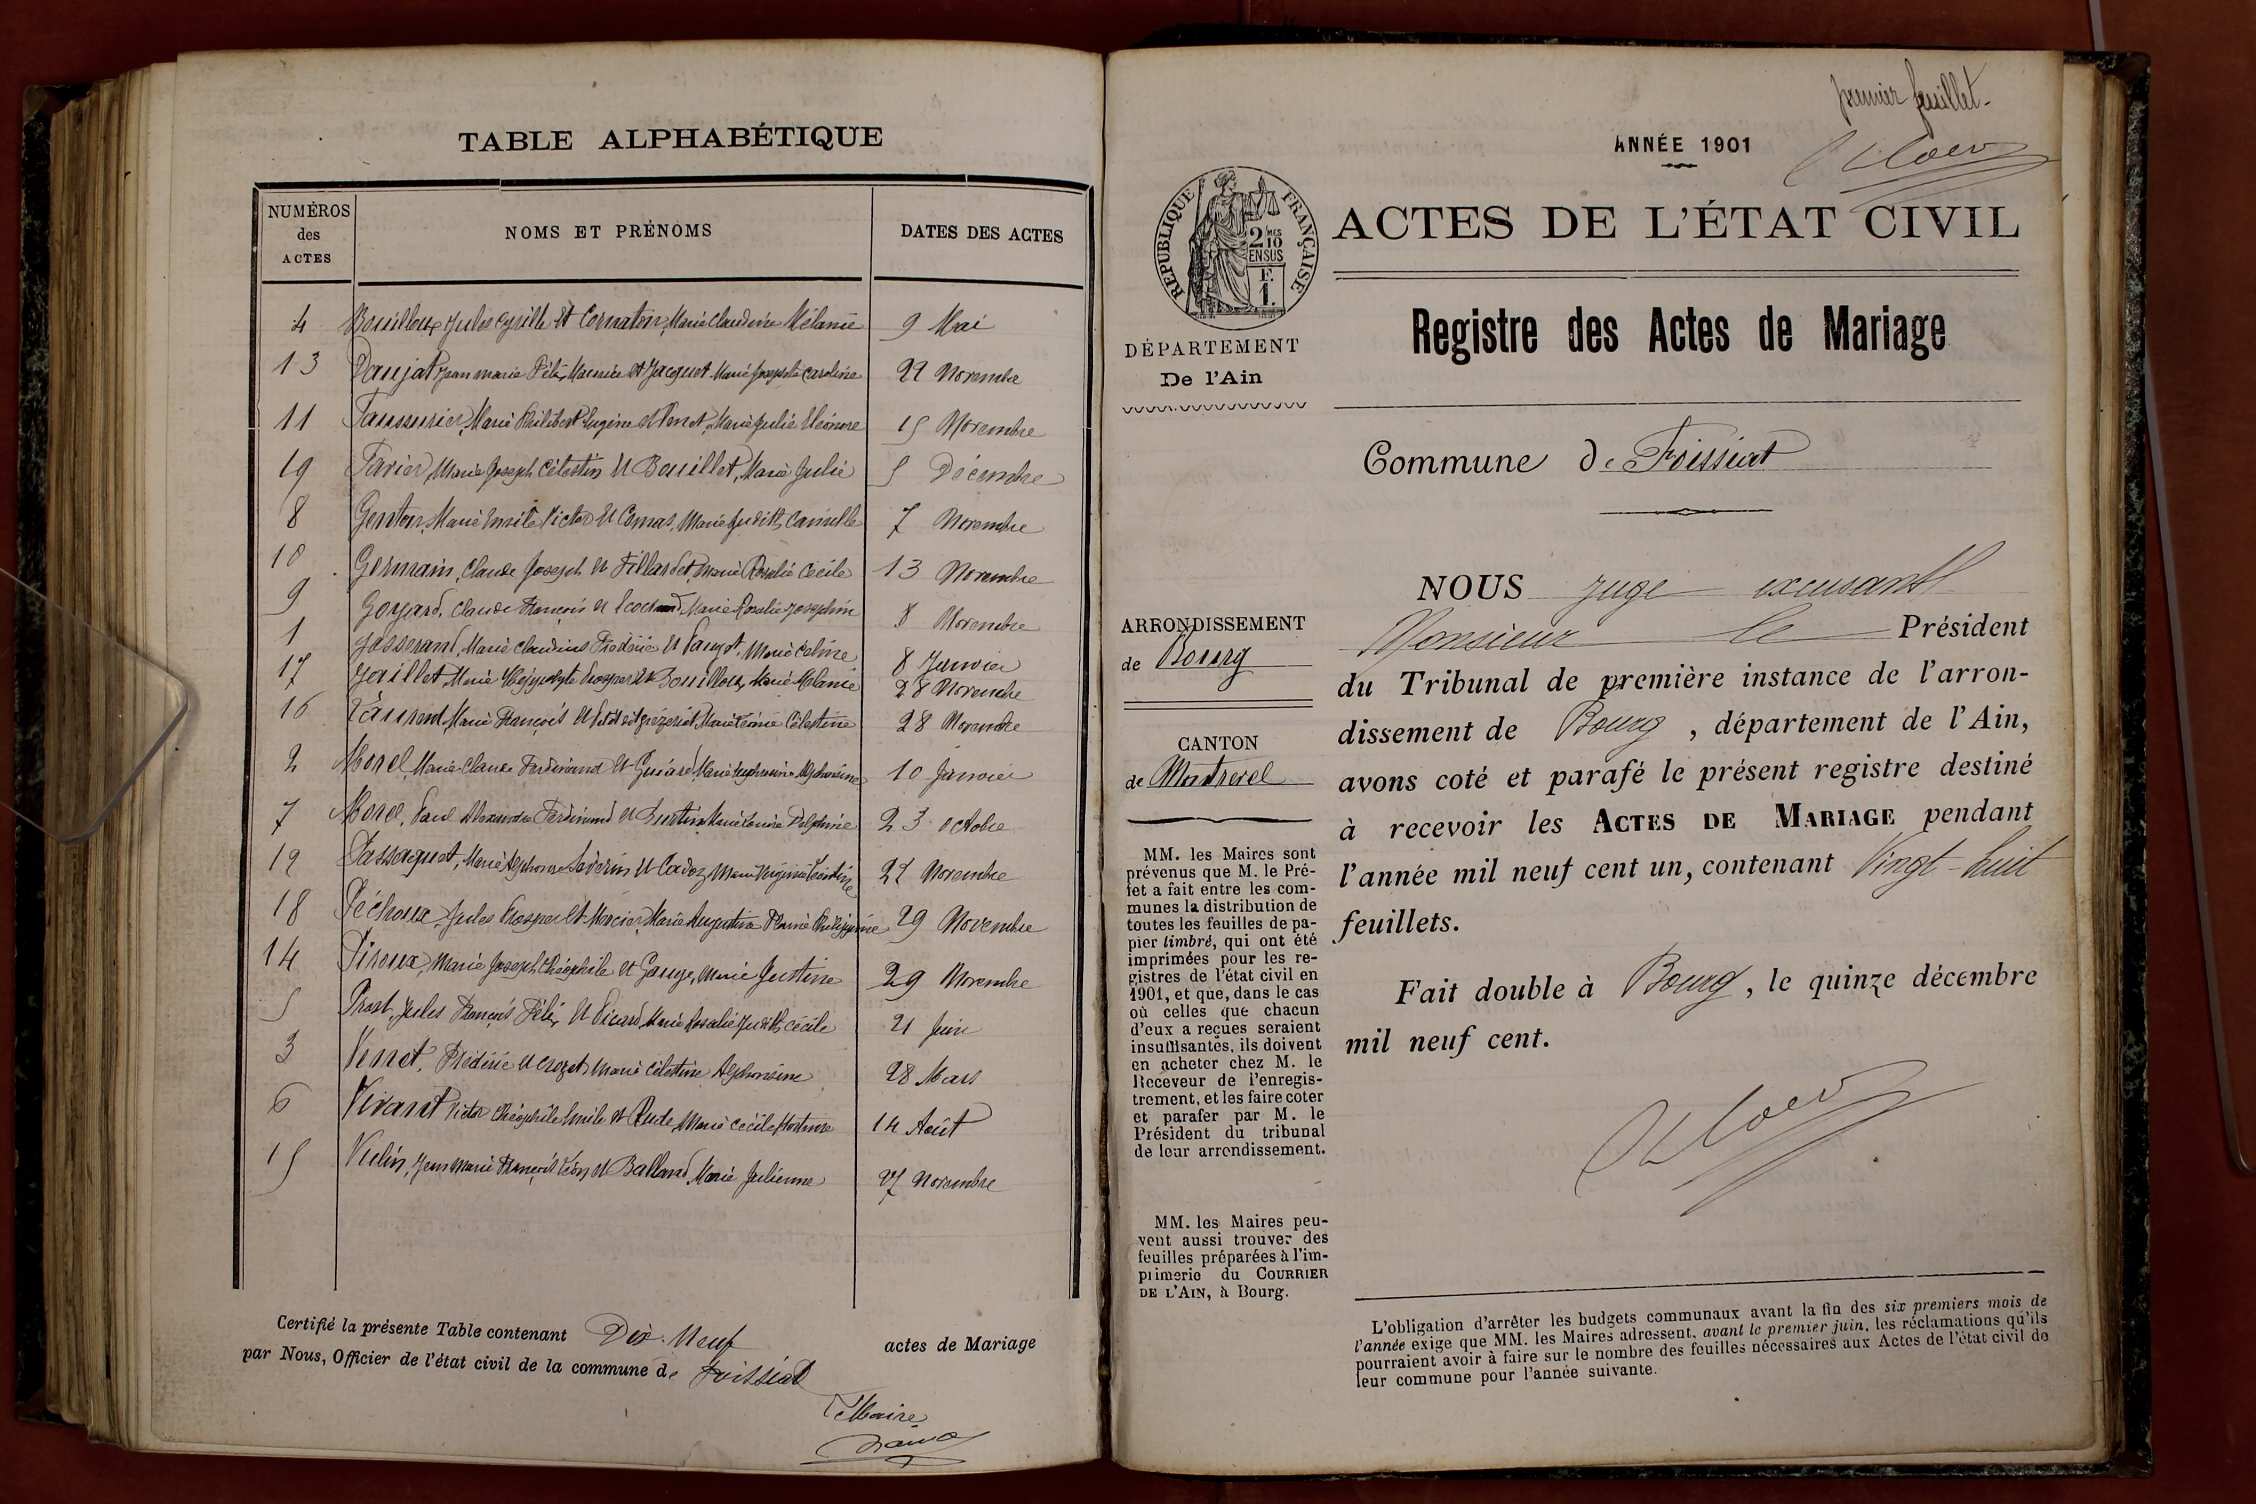 TABLE ALPHABÉTIQUE
NUMÉROS des ACTES
NOMS ET PRÉNOMS
DATES DES ACTES
4 Bouilloux Jules Cyrille et Cornaton, Marie Claudine Mélanie 9 Mai
13 Daujat Jean Marie Félix Maurice et Jacquet Marie Josephte Caroline 22 Novembre
11 Marie Philibert Eugène et Penet, Marie Julie Eléonore 15 Novembre
19 Favier, Marie Joseph Célestin et Bouillet, Marie Julie 5 Décembre
8 Genton, Marie Emile Victor et Comas, Marie Judith, Camille 7 Novembre
10 Germain, Claude Joseph et Fillardet, Marie Rosalie Cécile 13 Novembre
9 Goyard, Claude François et Marie Rosalie Joséphine 8 Novembre
1 Josserand, Marie Claudius Frédéric et Marie Céline 8 Janvier
17 Jouillet Marie Hippolyte Prosper et Bouilloux, Marie Mélanie 28 Novembre
16 Laurent, Marie François et Marie Célestine 28 Novembre
2 Morel, Marie Claude Ferdinand et Marie Euphrasine Alphonsine 10 Janvier
7 Morel, Paul Alexandre Ferdinand et Marie Louise Delphine 23 octobre
12 Passaquet, Marie Alphonse Séverin et Cadoz, Marie Virginie Léontine 22 Novembre
18 Péchoux, Jules Prosper et Mercier, Marie Augustine Philippine 29 Novembre
14 Piroux, Marie Joseph Théophile et Gauge, Marie Justine 29 Novembre
5 Prost, Jules François Félix et Picard, Marie Rosalie Judith Cécile 21 Juin
3 Venet, Frédéric et Crozet, Marie Célestine Alphonsine 28 Mars
6 Vivant Victor Théophile Emile et Rude, Marie Cécile Hortense 14 Août
15 Vielin, Jean Marie François Léon et Balland, Marie Julienne 27 Novembre
Certifié la présente Table contenant Dix-Neuf actes de Mariage
par Nous, Officier de l'état civil de la commune de Foissiat
Le Maire
premier feuillet.
ANNÉE 1901
RÉPUBLIQUE FRANÇAISE
2 MES 10 EN SUS
F. 1.
ACTES DE L'ÉTAT CIVIL
Registre des Actes de Mariage
DÉPARTEMENT
De l'Ain
Commune de Foissiat
ARRONDISSEMENT
de Bourg
CANTON
de Montrevel
MM. les Maires sont
prévenus que M. le Pré-
fet a fait entre les com-
munes la distribution de
toutes les feuilles de pa-
pier timbré, qui ont été
imprimées pour les re-
gistres de l'état civil en
1901, et que, dans le cas
où celles que chacun
d'eux a reçues seraient
insuffisantes, ils doivent
en acheter chez M. le
Receveur de l'enregis-
trement, et les faire coter
et parafer par M. le
Président du tribunal
de leur arrondissement.
MM. les Maires peu-
vent aussi trouver des
feuilles préparées à l'im-
primerie du COURRIER
DE L'AIN, à Bourg.
NOUS juge excusant
Monsieur le Président
du Tribunal de première instance de l'arron-
dissement de Bourg, département de l'Ain,
avons coté et parafé le présent registre destiné
à recevoir les ACTES DE MARIAGE pendant
l'année mil neuf cent un, contenant Vingt-huit
feuillets.
Fait double à Bourg, le quinze décembre
mil neuf cent.
L'obligation d'arrêter les budgets communaux avant la fin des six premiers mois de
l'année exige que MM. les Maires adressent, avant le premier juin, les réclamations qu'ils
pourraient avoir à faire sur le nombre des feuilles nécessaires aux Actes de l'état civil de
leur commune pour l'année suivante.